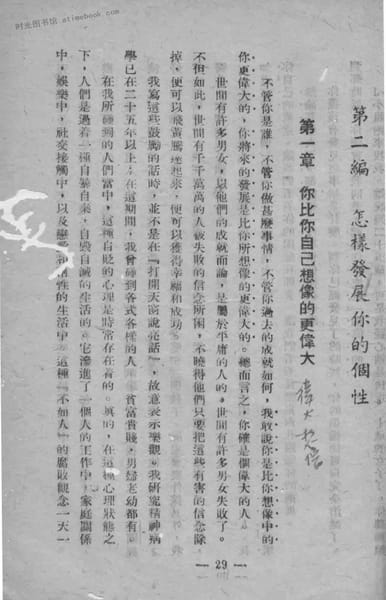 时光图书馆 atimebook.com
第二編　怎樣發展你的個性
第一章　你比你自己想像的更偉大
偉大
不管你是誰，不管你做甚麽事情，不管你過去的成就如何，我敢說你是比你想像中的
你更偉大的，你將來的發展是比你所想像的更偉大的。總而言之，你確是個偉大的人。
世間有許多男女，以他們的成就而論，是屬於平庸的人的。世間有許多男女失敗了。
不但如此，世間有千千萬萬的人被失敗的信念所困，不曉得他們只要把這些有害的信念除
掉，便可以飛黃騰達起來，便可以獲得幸福和成功。
我寫這些鼓勵的話時，並不是在『打開天窗說亮話』，故意表示樂觀。我研究精神病
學已在二十五年以上，在這期間，我曾碰到各式各樣的人，貧富貴賤，男婦老幼都有。
在我所碰到的人們當中，這種自貶的心理是時常存在着的。真的，在這種心理狀態之
下，人們是過着一種自暴自棄，自毀自滅的生活的。它滲進了一個人的工作中，家庭關係
中，娛樂中，社交接觸中，以及戀愛和性的生活中。這種『不如人』的腐敗觀念一天一
— 29 —